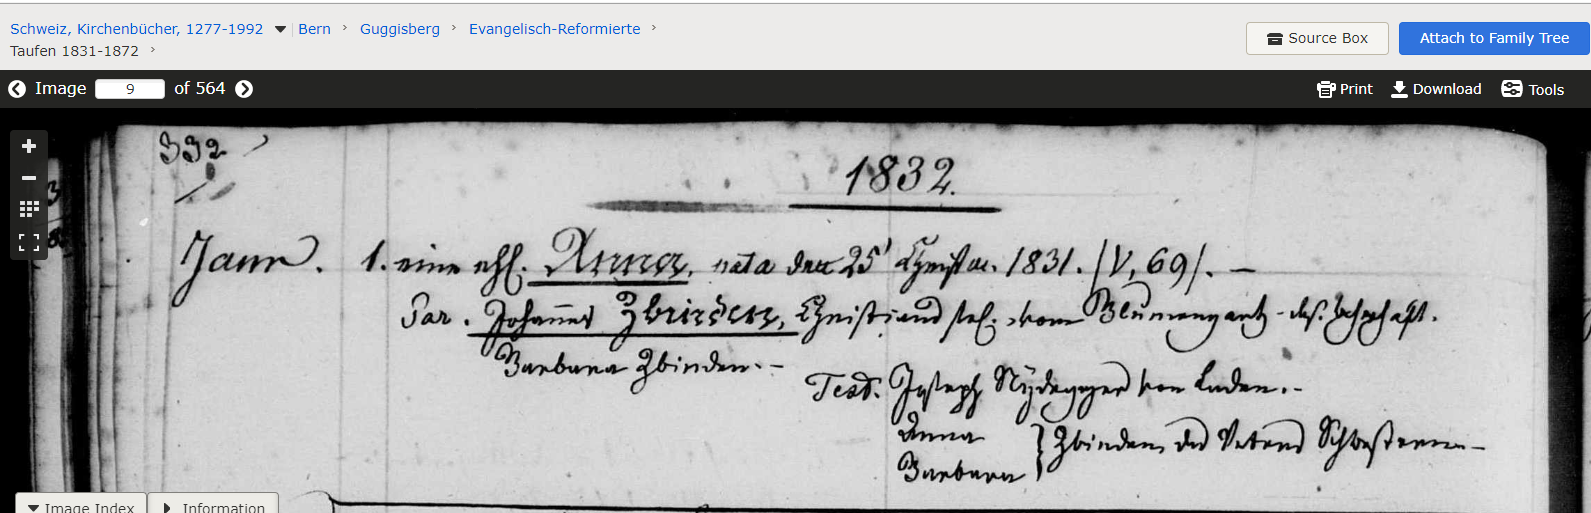 Schweiz, Kirchenbücher, 1277-1992 Bern Guggisberg Evangelisch-Reformierte
Taufen 1831-1872
Source Box
Attach to Family Tree
Image 9 of 564
Print Download Tools
332
1832.
Jann. 1. eine ehl. Anna, nata den 25 Christm. 1831. /V, 69/. –
Par. Johannes Zbinden, Christians sel. vom Blumengarth
Barbara Zbinden. –
Test. Joseph Nydegger von Laden. –
Anna
Zbinden, des Vaters Schwestern
Barbara
Image Index Information